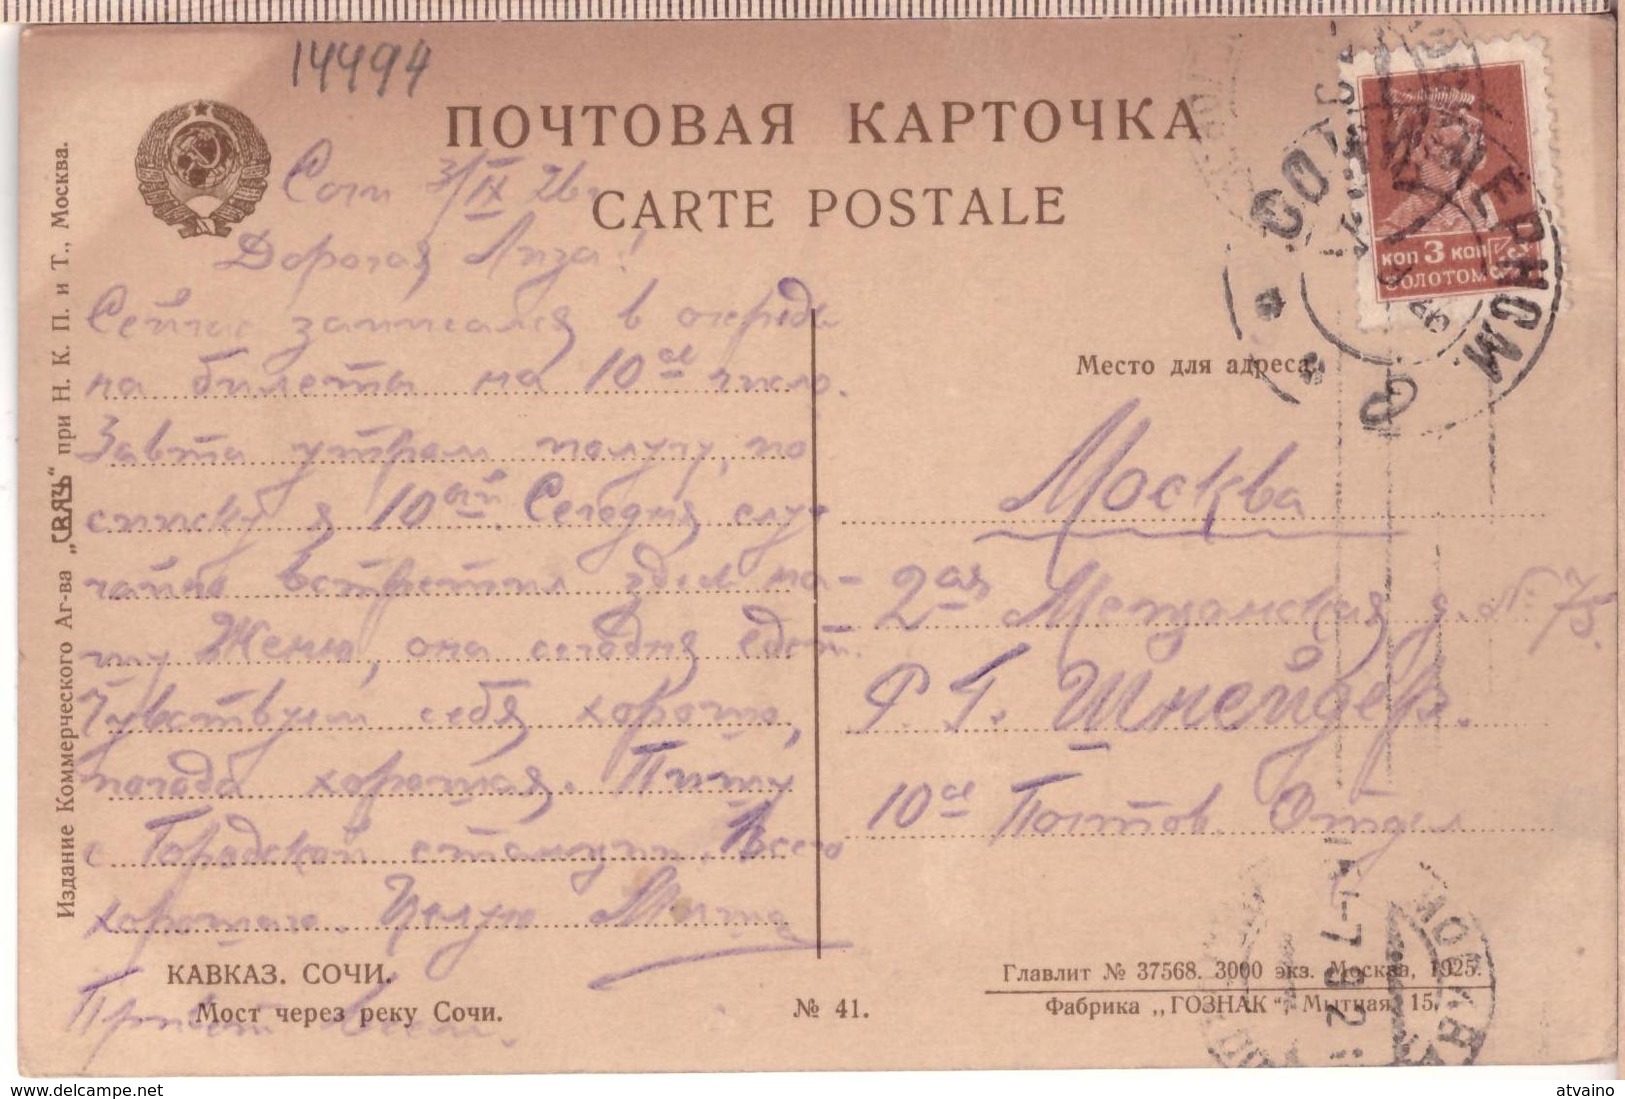 14494
ПОЧТОВАЯ КАРТОЧКА
CARTE POSTALE
Сочи 3/IX 26г.
Дорогая Лиза!
Сейчас записался в очередь
на билеты на 10ое число.
Завтра утром получу, по
списку я 10ый. Сегодня слу
чайно встретил здесь на-
шу Женю, она сегодня едет.
Чувствуем себя хорошо,
погода хорошая. Пишу
с Городской станции. Всего
хорошего. Целую
Привет всем.
КАВКАЗ. СОЧИ.
Мост через реку Сочи.
№ 41.
Издание Коммерческого Аг-ва „СВЯЗЬ" при Н. К. П. и Т., Москва.
КОП 3 КОП
ЗОЛОТОМ
СОЧИ ЧЕРНОМ
Место для адреса.
Москва
2ая Мещанская д. № 75.
Р. Г. Шнейдер.
10ое Почтов. Отдел
Главлит № 37568. 3000 экз. Москва, 1925.
Фабрика „ГОЗНАК". Мытная, 15.
МОСКВА
-7 9 2
atvaino